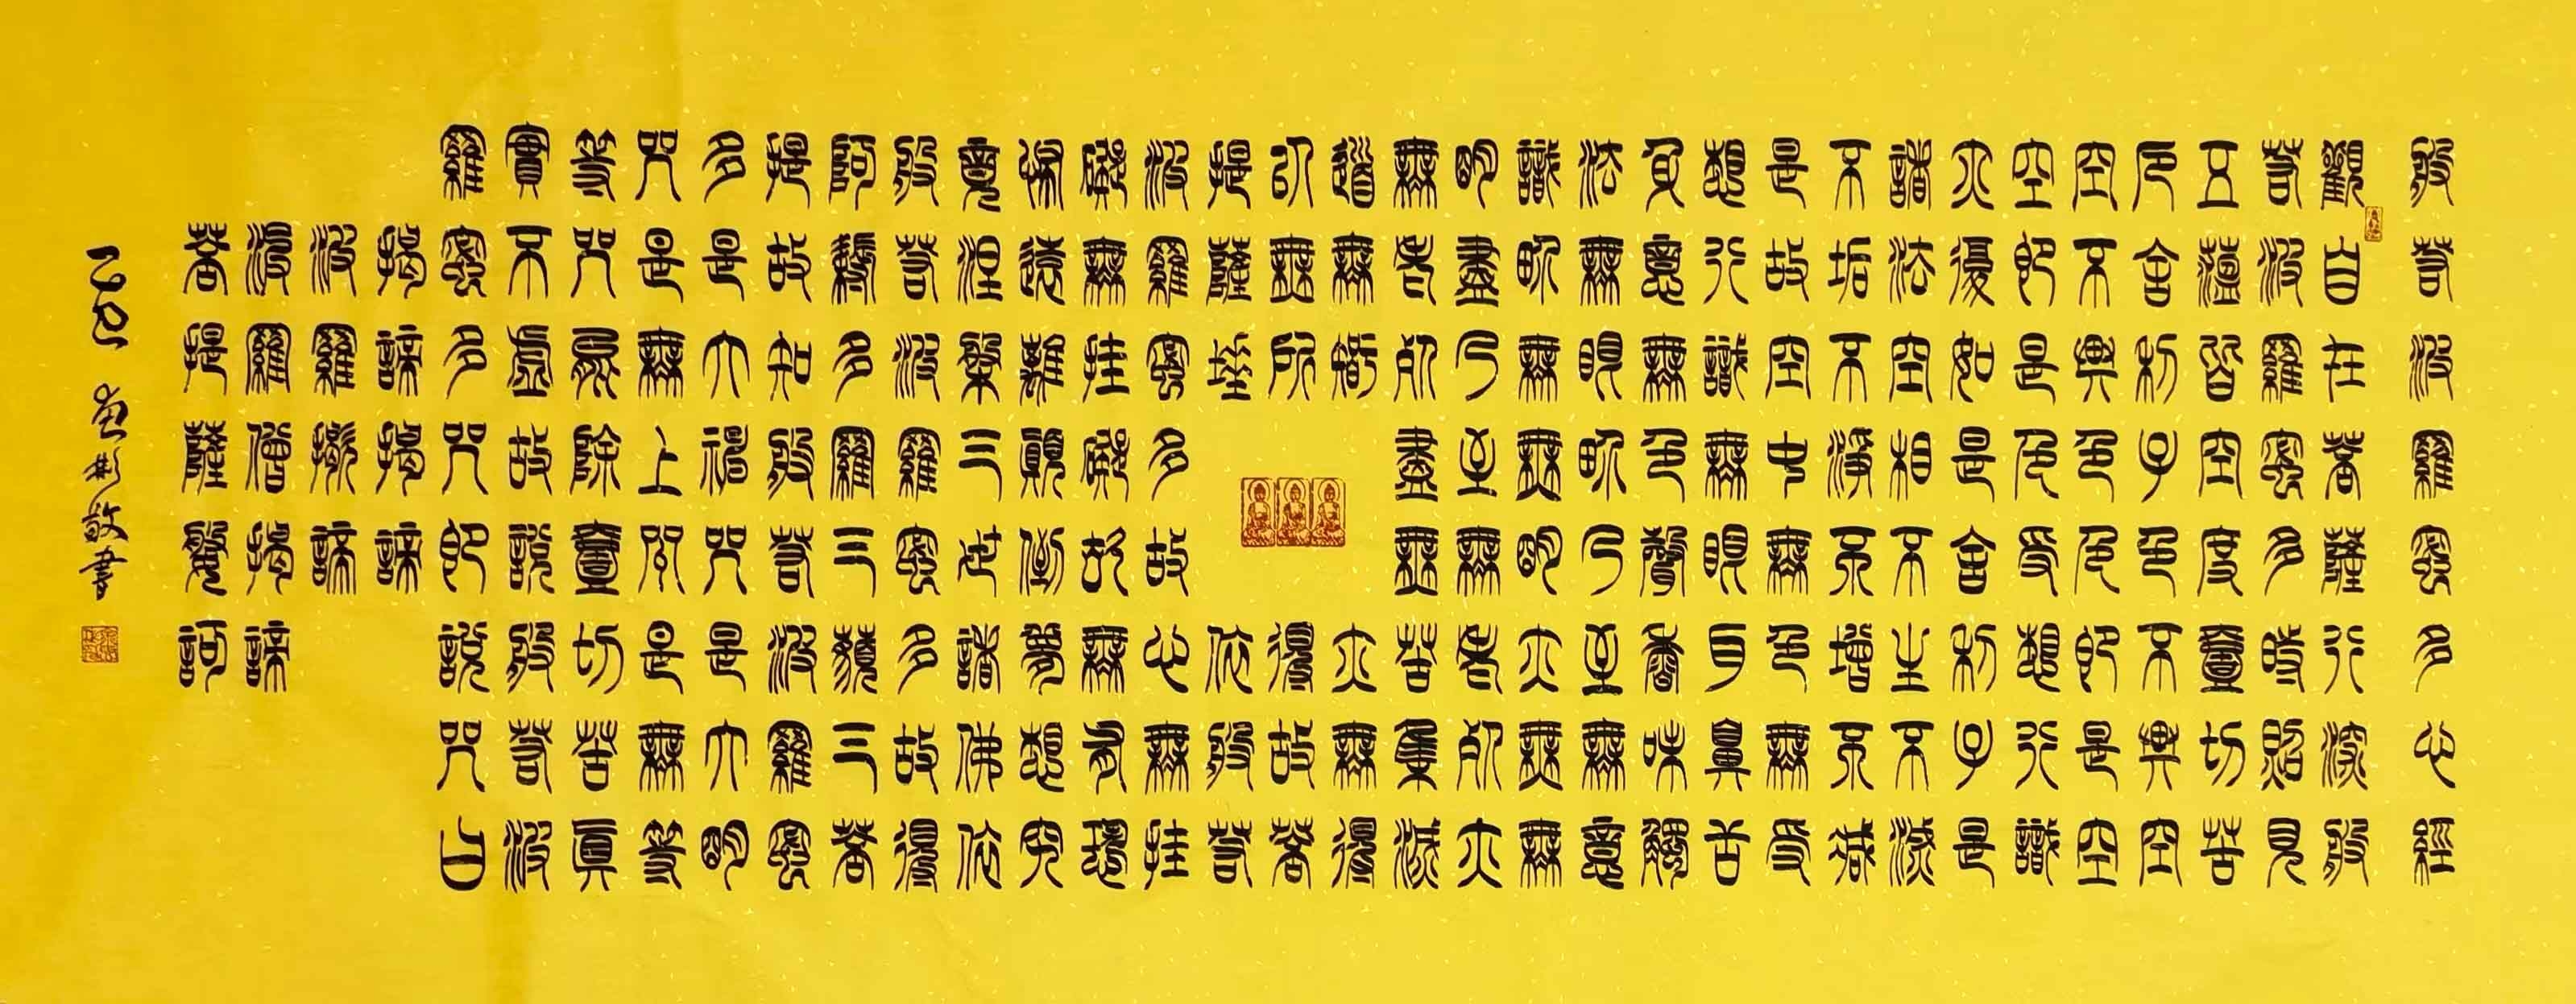 般若波羅蜜多心經
觀自在菩薩行深般
若波羅蜜多時照見
五蘊皆空度壹切苦
厄舍利子色不異空
空不異色色即是空
空即是色受想行識
亦復如是舍利子是
諸法空相不生不滅
不垢不淨不增不減
是故空中無色無受
想行識無眼耳鼻舌
身意無色聲香味觸
法無眼界乃至無意
識界無無明亦無無
明盡乃至無老死亦
無老死盡無苦集滅
道無智亦無得
以無所得故菩
提薩埵依般若
波羅蜜多故心無挂
礙無挂礙故無有恐
怖遠離顛倒夢想究
竟涅槃三世諸佛依
般若波羅蜜多故得
阿耨多羅三藐三菩
提故知般若波羅蜜
多是大神咒是大明
咒是無上咒是無等
等咒能除壹切苦真
實不虛故說般若波
羅蜜多咒即說咒曰
揭諦揭諦
波羅揭諦
波羅僧揭諦
菩提薩婆訶
乙巳 彬敬書